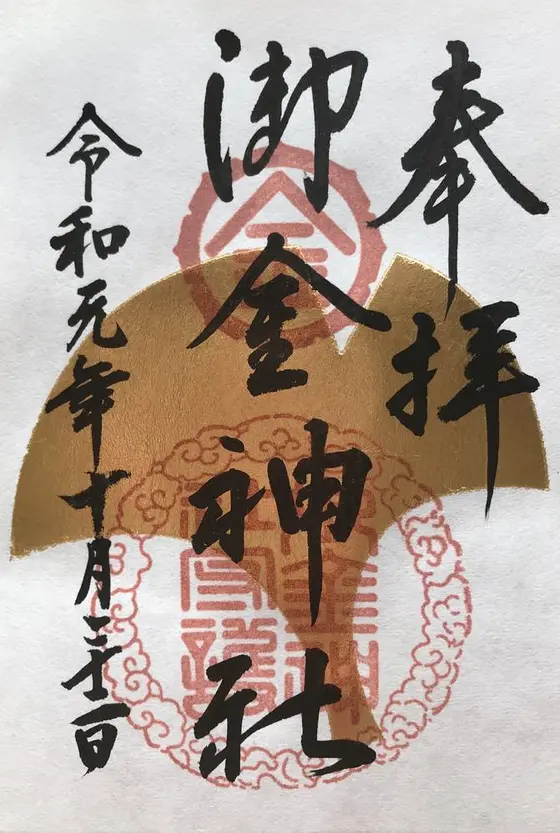 奉拝
御金神社
令和元年十月二十一日
金